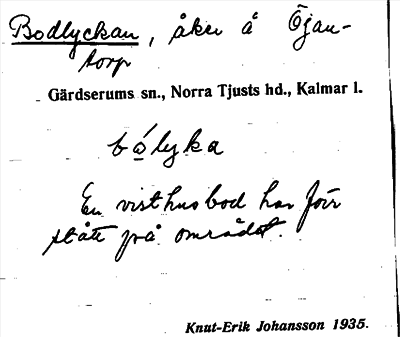 Bodlyckan, åker å Öjan-
torp
Gärdserums sn., Norra Tjusts hd., Kalmar l.
bólyka
En visthusbod har förr
stått på området.
Knut-Erik Johansson 1935.